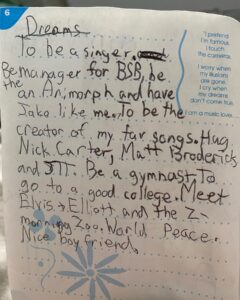 6
Dreams
To be a singer.
Be the manager for BSB, be
an Animorph and have
Jake like me. To be the
creator of my fav songs. Hug
Nick Carter, Matt Broderick
and JTT. Be a gymnast. To
go to a good college. Meet
Elvis + Elliott and the Z-
morning Zoo. World Peace.
Nice boyfriend.
I pretend
I'm famous.
I touch
the cameras.
I worry when
my illusions
are gone.
I cry when
my dreams
don't come true.
I am a music lover.